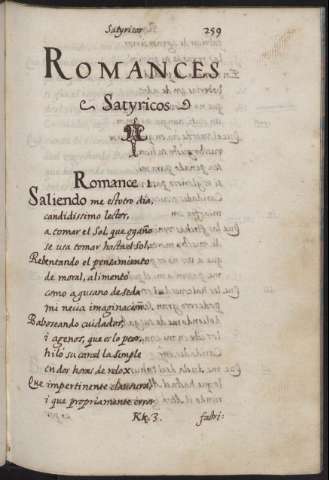 Satyricos 259
ROMANCES
Satyricos
Romance 1.
Saliendo me estotro dia,
candidissimo lector,
a tomar el Sol, que ogaño
se usa tomar hasta el sol,
Rebentando el pensamiento
de moral, alimentò
como a gusano de seda
mi necia imaginacion.
Baboseando cuidados,
i agenos, que es lo peor,
hilò su carcel la simple
en dos horas de relox.
Que impertinente clausura,
i que propriamente error
Kk. 3. fabri-